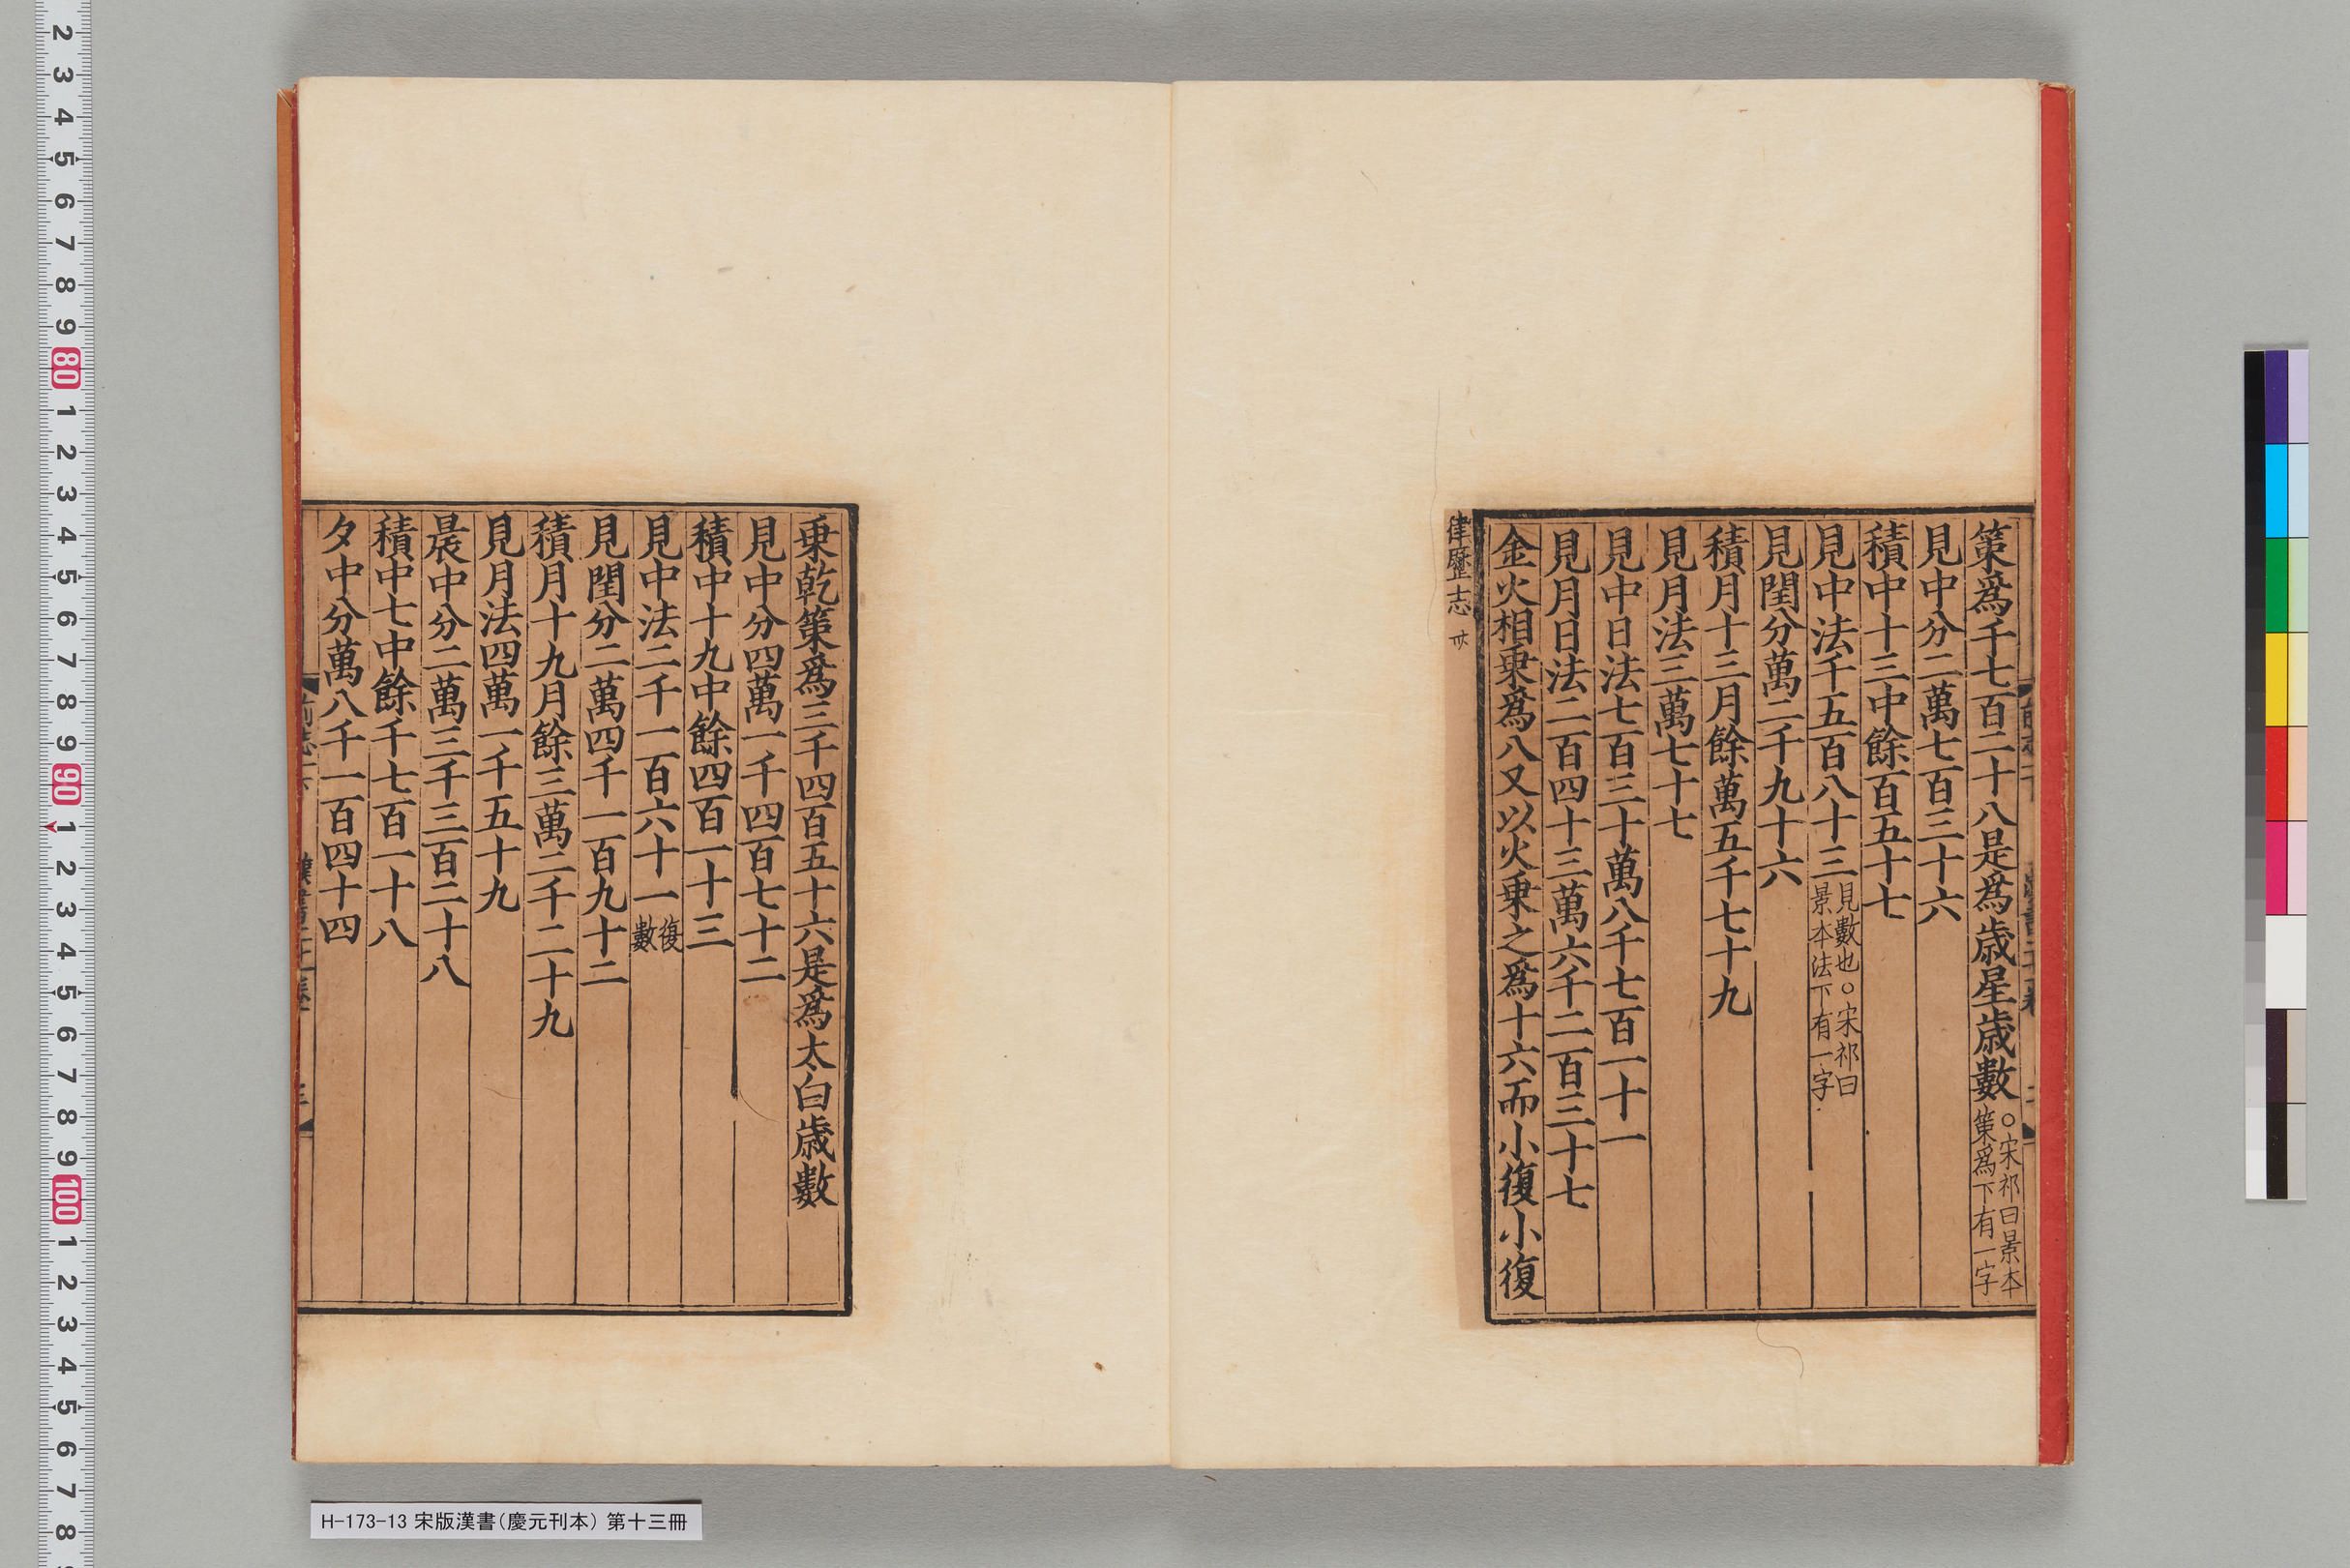 策爲千七百二十八是爲歳星歳數○宋祁曰景本策爲下有一字
見中分二萬七百三十六
積中十三中餘百五十七
見中法千五百八十三見數也○宋祁曰景本法下有一字
見閏分萬二千九十六
積月十三月餘萬五千七十九
見月法三萬七十七
見中日法七百三十萬八千七百一十一
見月日法二百四十三萬六千二百三十七
金火相乗爲八又以火乗之爲十六而小復小復
律歷志 卅
乗乾策爲三千四百五十六是爲太白歳數
見中分四萬一千四百七十二
積中十九中餘四百一十三
見中法二千一百六十一復數
見閏分二萬四千一百九十二
積月十九月餘三萬二千二十九
見月法四萬一千五十九
晨中分二萬三千三百二十八
積中七中餘千七百一十八
夕中分萬八千一百四十四
H-173-13 宋版漢書(慶元刊本) 第十三冊
2
3
4
5
6
7
8
9
80
1
2
3
4
5
6
7
8
9
90
1
2
3
4
5
6
7
8
9
100
1
2
3
4
5
6
7
8